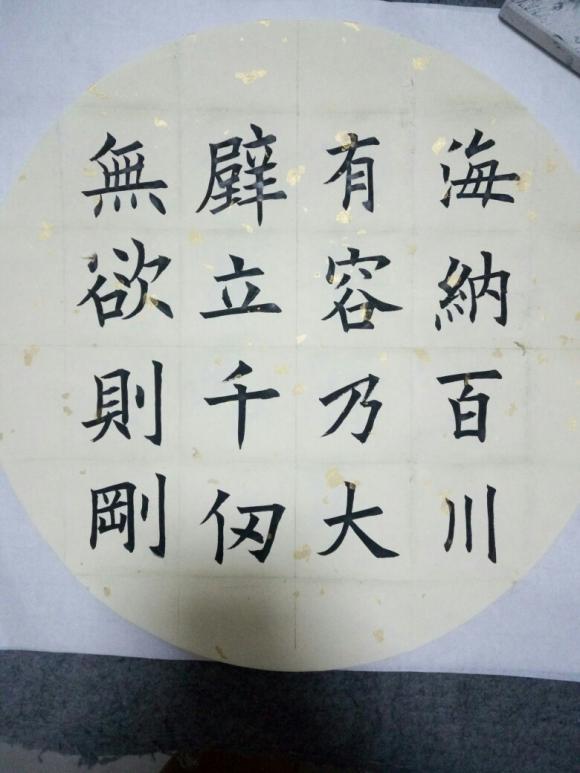 海納百川
有容乃大
壁立千仞
無欲則剛